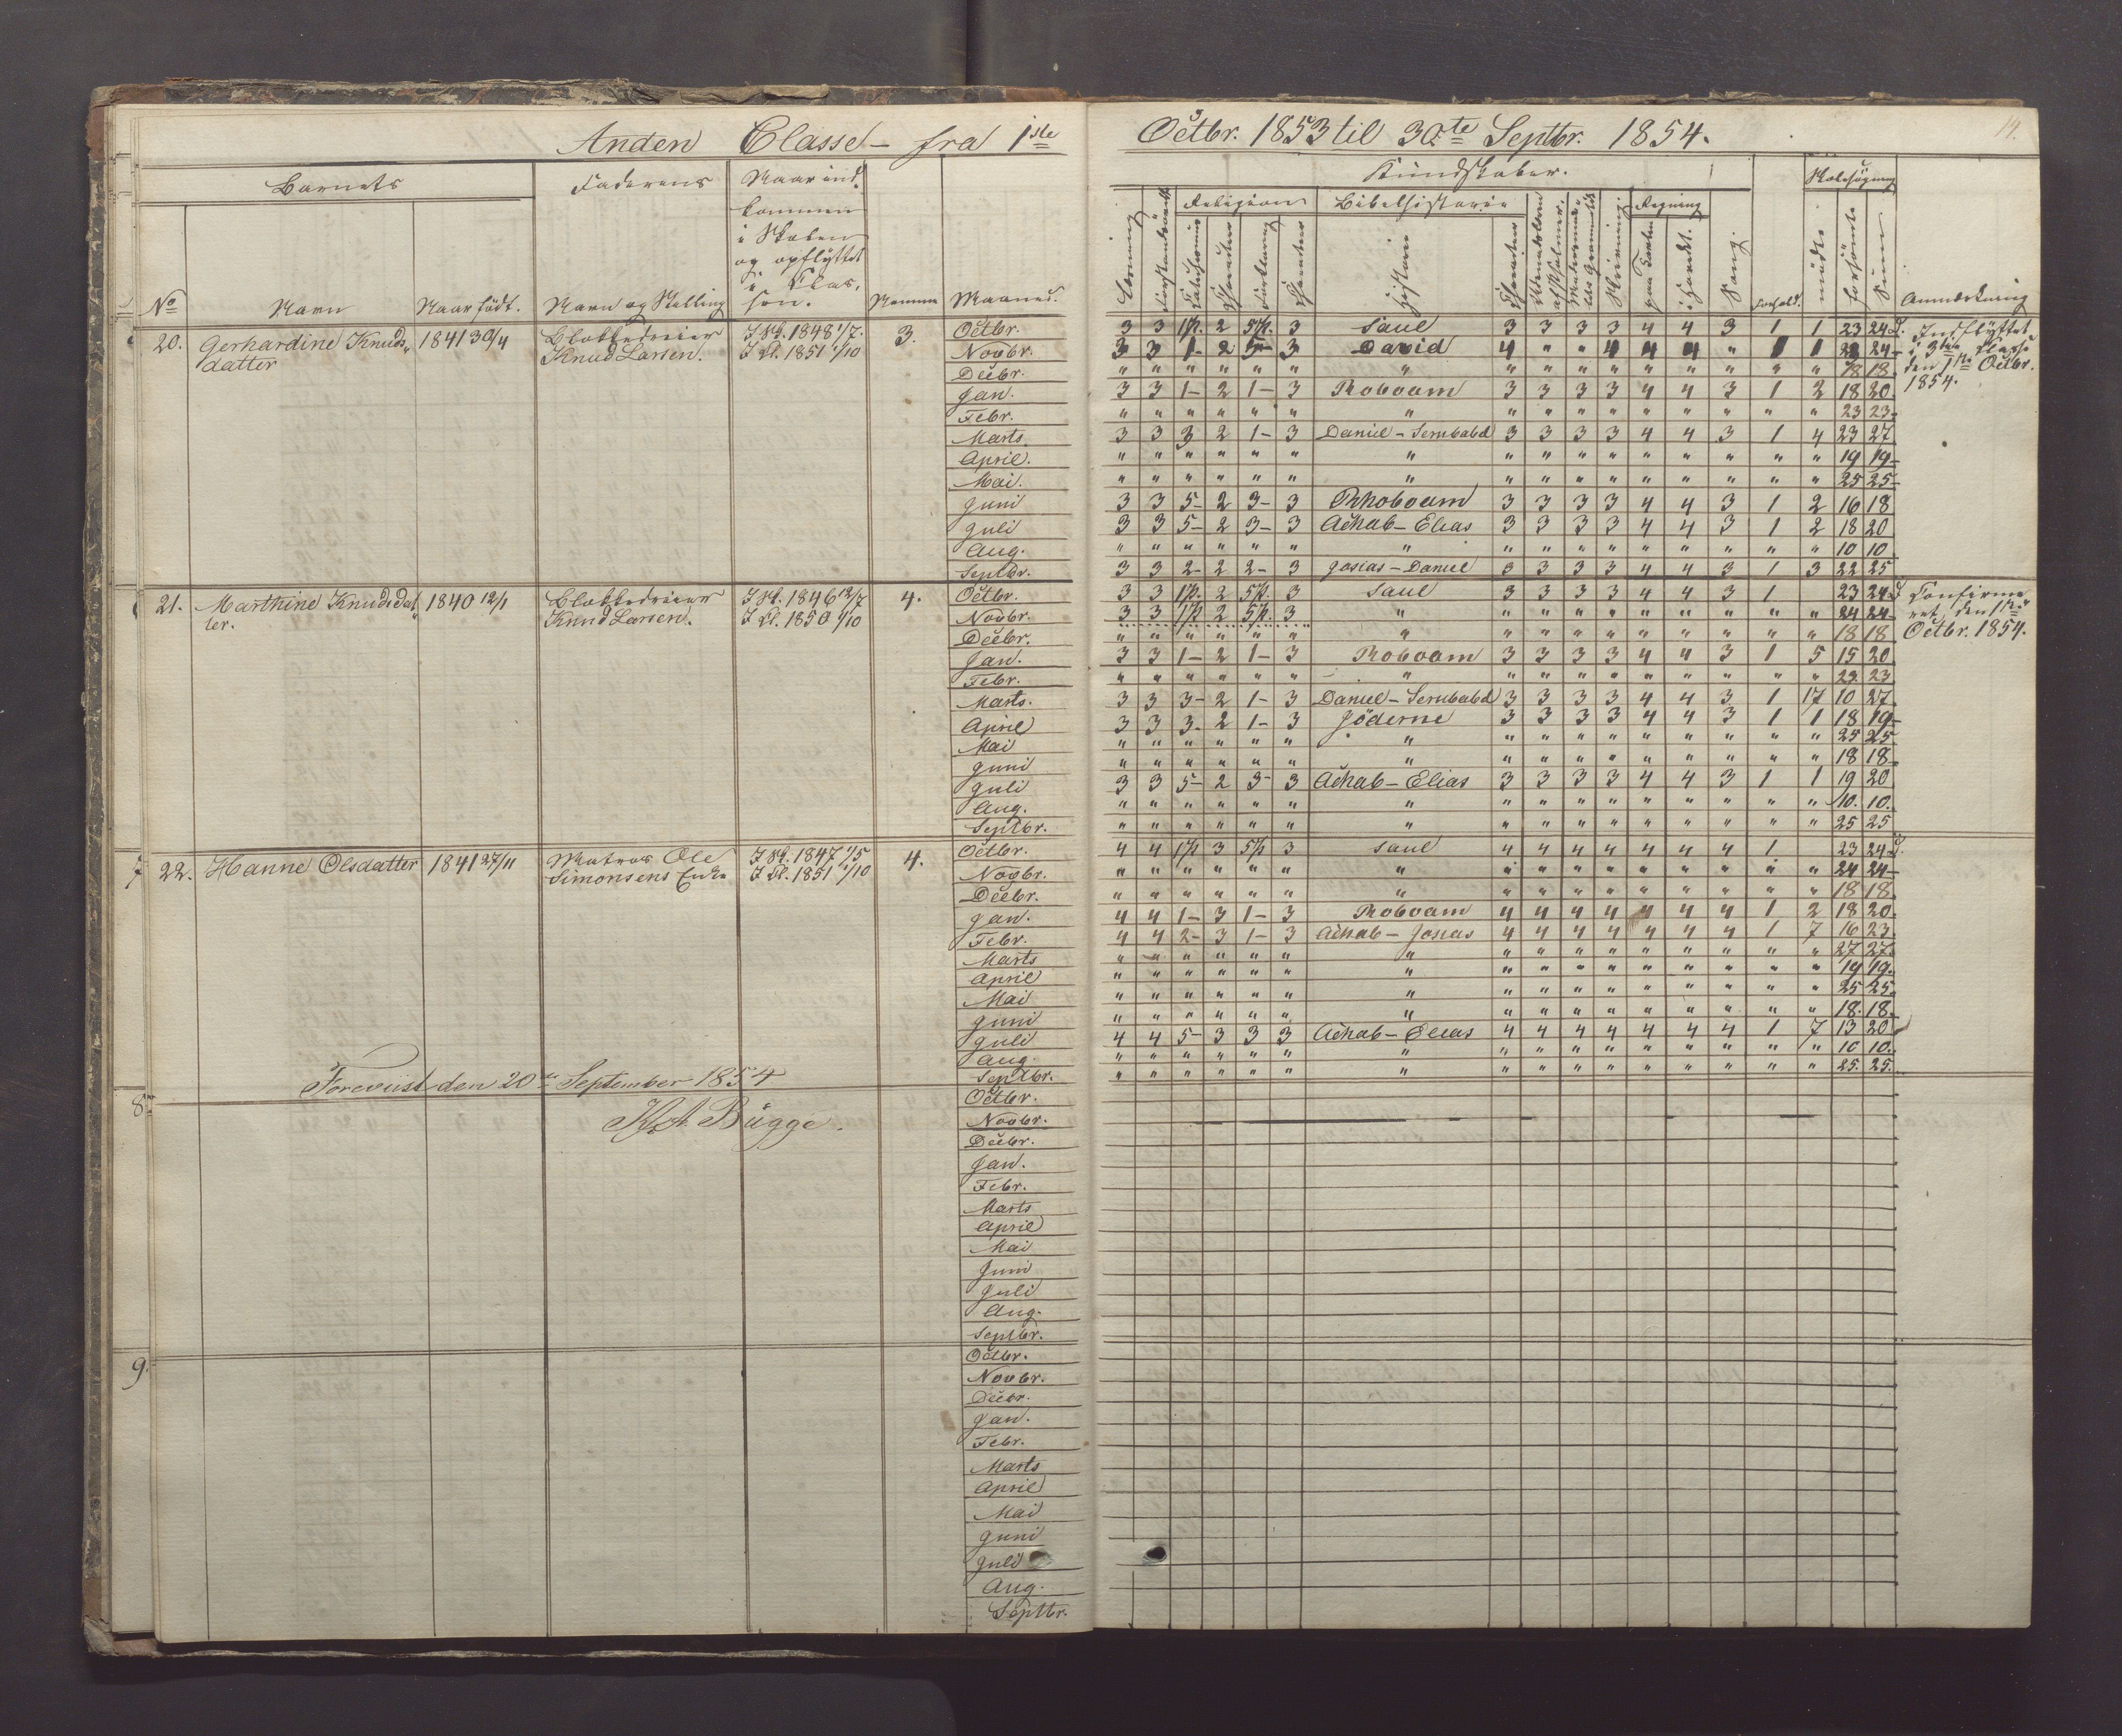 Anden Classe – fra 1ste Octbr. 1853 til 30te Septbr. 1854.
14.
Barnets
Faderens
Naar ind-
kommen
i Skolen
og opflyttet
i Clas-
sen.
No
Navn
Naar født.
Navn og Stilling
Nummer
Maaned.
Kundskaber.
Skolesøgning
Religion
Bibelhistorie
Regning
Historie
Skrivning.
paa Tavlen
i Hovedet.
Sang.
Forhold.
mødte
forsömte
Sum
Anmærkning
20. Gerhardine Knuds- 1841 30/4 Blokkedreier I Sk. 1848 1/7. 3.
datter Knud Larsen. I Cl. 1851 1/10
Octbr. 3 3 1/2. 2 5/2. 3 Saul 3 3 3 3 4 4 3 1 1 23 24 d. Indflyttet
Novbr. 3 3 1– 2 5– 3 David 4 " " 4 4 4 " 1 1 23 24 i 3die Classe
Decbr. " " " " " " " " " " " " " " " " 18 18. den 1ste Octbr.
Jan. 3 3 1– 2 1– 3 Roboam 3 3 3 3 4 4 3 1 2 18 20. 1854.
Febr. " " " " " " " " " " " " " " " " 23 23.
Marts 3 3 3 2 1– 3 Daniel – Serubabel 3 3 3 3 4 4 3 1 4 23 27.
April. " " " " " " " " " " " " " " " " 19 19
Mai. " " " " " " " " " " " " " " " " 25 25
Juni 3 3 5– 2 3– 3 Rhoboam 3 3 3 3 4 4 3 1 2 16 18
Juli 3 3 5– 2 3– 3 Achab – Elias 3 3 3 3 4 4 3 1 2 18 20
Aug. " " " " " " " " " " " " " " " " 10 10
Septbr. 3 3 2– 2 2– 3 Josias – Daniel 3 3 3 3 4 4 3 1 3 22 25
21. Marthine Knudsdat- 1840 12/1 Blokkedreier I Sk. 1846 12/7 4.
ter. Knud Larsen. I Cl. 1850 1/10
Octbr. 3 3 1/2. 2 5/2. 3 Saul 3 3 3 3 4 4 3 1 23 24 d Confirme-
Novbr. 3 3 1/2 2 5/2. 3 " " " " " " " " " " 24 24 ret den 1ste
Decbr. " " " " " " " " " " " " " " " " 18 18 Octbr. 1854.
Jan. 3 3 1– 2 1– 3 Roboam 3 3 3 3 4 4 3 1 5 15 20
Febr. " " " " " " " " " " " " " " " " 23 23
Marts. 3 3 3– 2 1– 3 Daniel – Serubabel 3 3 3 3 4 4 3 1 17 10 27.
April 3 3 3– 2 1– 3 Jöderne 3 3 3 3 4 4 3 1 1 18 19
Mai " " " " " " " " " " " " " " " " 25 25
Juni " " " " " " " " " " " " " " " " 18 18
Juli 3 3 5– 2 3– 3 Achab – Elias 3 3 3 3 4 4 3 1 1 19 20
Aug. " " " " " " " " " " " " " " " " 10. 10.
Septbr. " " " " " " " " " " " " " " " " 25 25
7 22. Hanne Olsdatter 1841 27/11 Matros Ole I Sk. 1847 1/5 4.
Simonsens Enke I Cl. 1851 1/10
Octbr. 4 4 1/2 3 5/2 3 Saul 4 4 4 4 4 4 4 1 23 24 d.
Novbr. " " " " " " " " " " " " " " " " 24 24
Decbr. " " " " " " " " " " " " " " " " 18 18.
Jan. 4 4 1– 3 1– 3 Roboam 4 4 4 4 4 4 4 1 2 18 20.
Febr. 4 4 2– 3 1– 3 Achab – Josias 4 4 4 4 4 4 4 1 7 16 23.
Marts " " " " " " " " " " " " " " " " 27 27.
April " " " " " " " " " " " " " " " " 19 19.
Mai " " " " " " " " " " " " " " " " 25 25.
Juni " " " " " " " " " " " " " " " " 18. 18.
Juli 4 4 5– 3 3 3 Achab – Elias 4 4 4 4 4 4 4 1 7 13 20
Aug. " " " " " " " " " " " " " " " " 10 10.
Septbr. " " " " " " " " " " " " " " " " 25. 25.
Foreviist den 20de September 1854
K. A. Bugge.
8.
Octbr.
Novbr.
Decbr.
Jan.
Febr.
Marts
April
Mai
Juni
Juli
Aug.
Septbr.
9.
Octbr.
Novbr.
Decbr.
Jan.
Febr.
Marts
April
Mai
Juni
Juli
Aug.
Septbr.